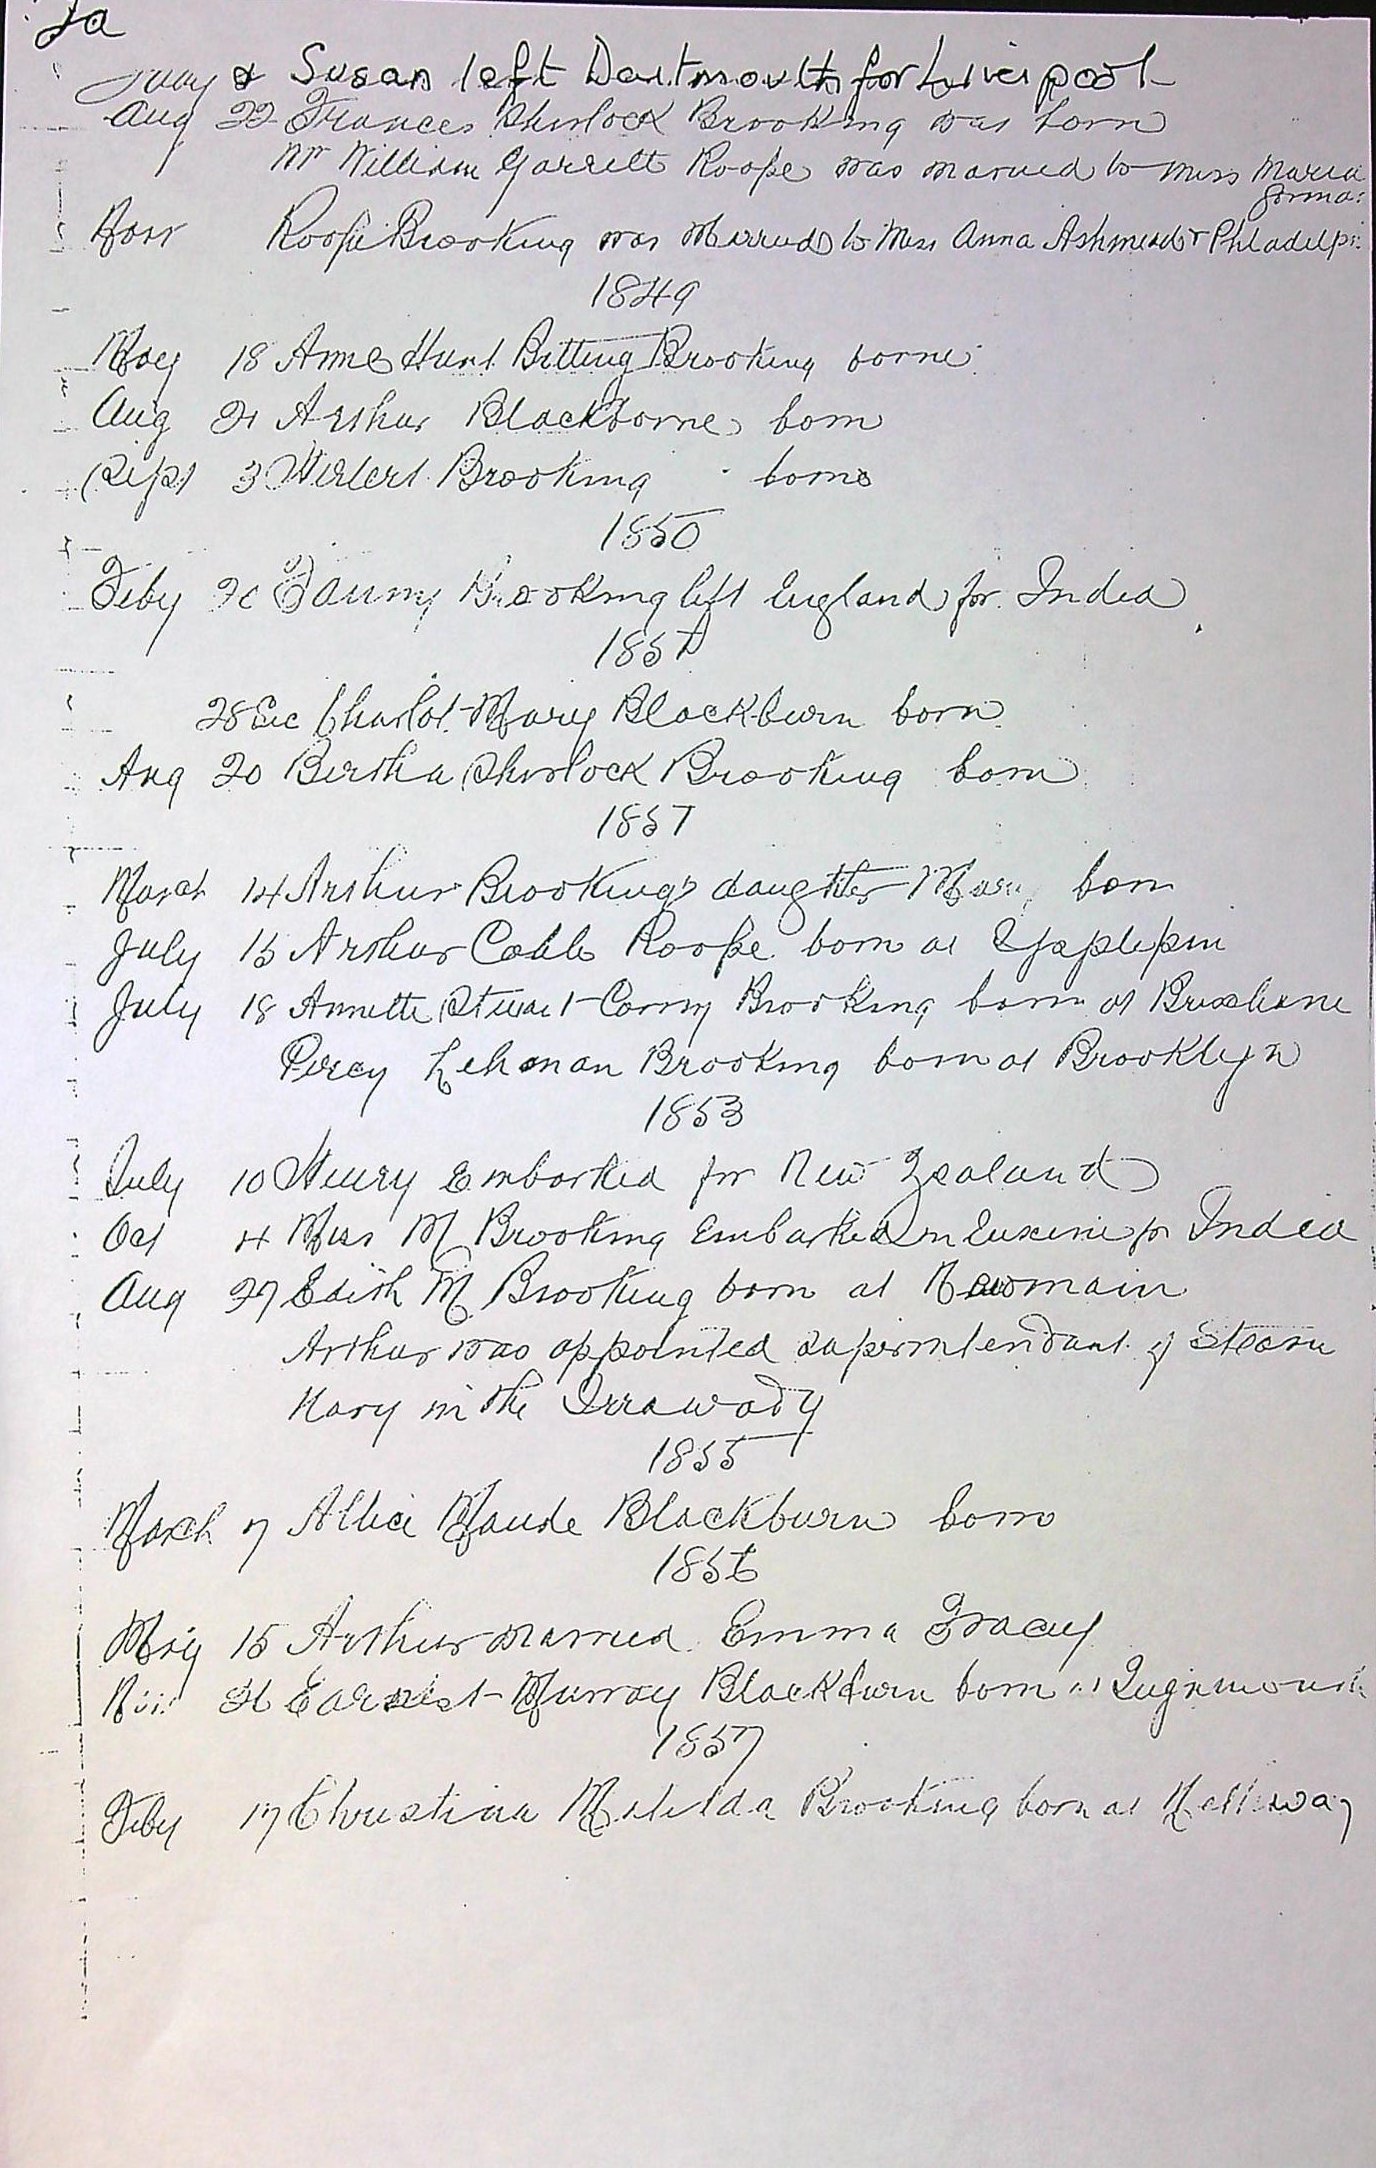 2a
July & Susan left Dartmouth for Liverpool
Aug 22 Frances Shurlock Brooking was born
Mr William Garrett Roope was married to Miss Maria
Novr Roope Brooking was Married to Miss Anna Ashmead Philadelp
1849
May 18 Anne Hunt Bitting Brooking borne
Aug 21 Arthur Blackborne born
Sept 3 Herbert Brooking borne
1850
Feby Fanny Brooking left England for India
185
28 Charlot Mary Blackburn born
Aug 20 Bertha Shurlock Brooking born
185
March 14 Arthur Brookings daughter Mary born
July 15 Arthur Roope born at
July 18 Annette Stuart Brooking born at Brisbane
Percy Lehman Brooking born at Brooklyn
1853
July 10 Henry Embarked for New Zealand
Oct 4 Miss M Brooking Embarked in Euxine for India
Aug 27 Edith M Brooking born at
Arthur was appointed superintendant of Steam
Navy in the Irrawady
1855
March 7 Allice Maude Blackburn born
1856
May 15 Arthur married Emma Tracey
Earnest Murray Blackburn born
1857
Feby 17 Christina Matilda Brooking born at